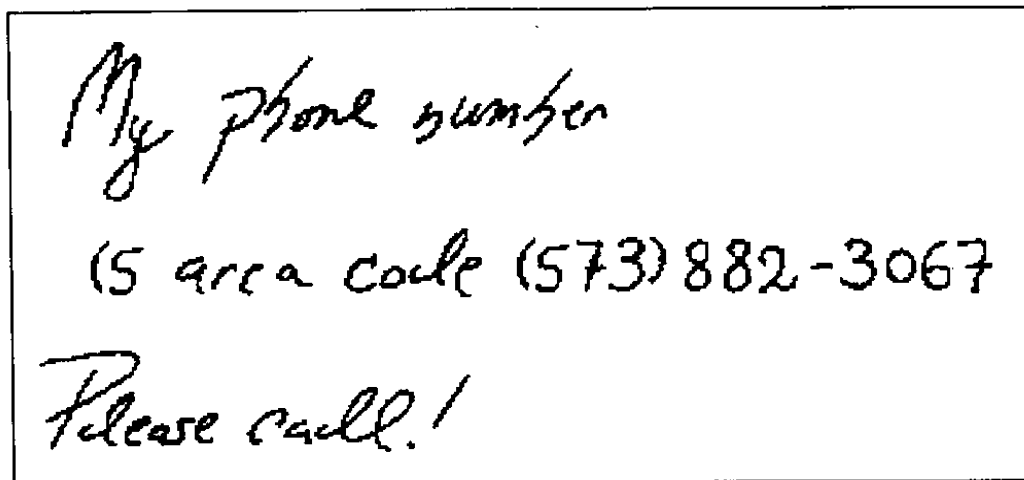 My phone number
is area code (573) 882-3067
Please call!